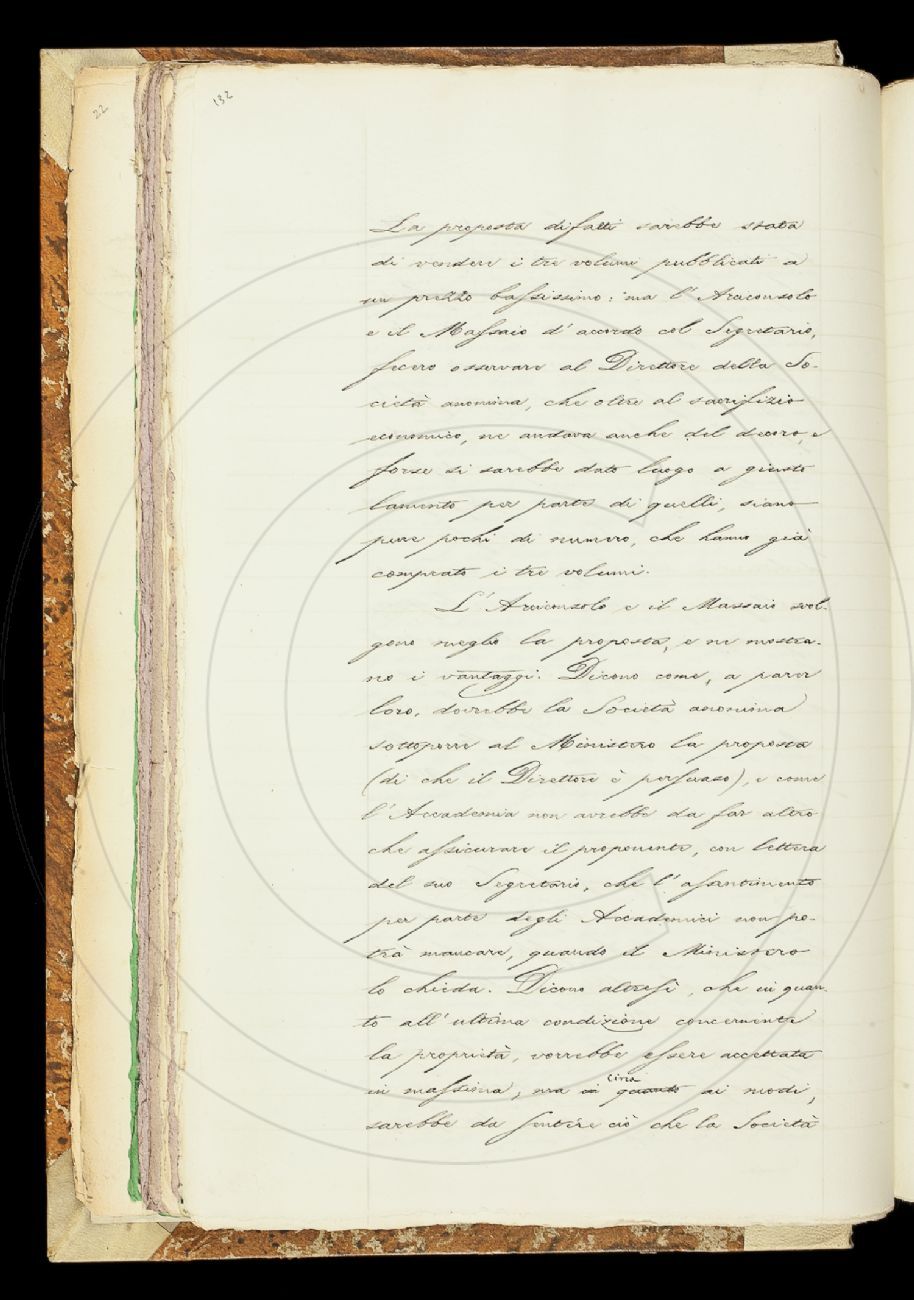 22
132
La proposta difatti sarebbe stata
di vendere i tre volumi pubblicati a
un prezzo bassissimo: ma l'Arciconsolo
e il Massaio d'acordo col Segretario,
fecero osservare al Direttore della So-
cietà anonima, che oltre al sacrifizio
economico, ne andava anche del decoro, e
forse si sarebbe dato luogo a giusto
lamento per parte di quelli, siano
pure pochi di numero, che hanno già
comprato i tre volumi.
L'Arciconsolo e il Massaio svol-
gono meglio la proposta, e ne mostra-
no i vantaggi. Dicono come, a parer
loro, dovrebbe la Società anonima
sottoporre al Ministero la proposta
(di che il Direttore è persuaso), e come
l'Accademia non avrebbe da far altro
che assicurare il proponente, con lettera
del suo Segretario, che l'assentimento
per parte degli Accademici non po-
trà mancare, quando il Ministero
lo chieda. Dicono altresì, che in quan-
to all'ultima condizione concernente
la proprietà, vorrebbe essere accettata
in massima, ma in quanto circa ai modi,
sarebbe da sentire ciò che la Società